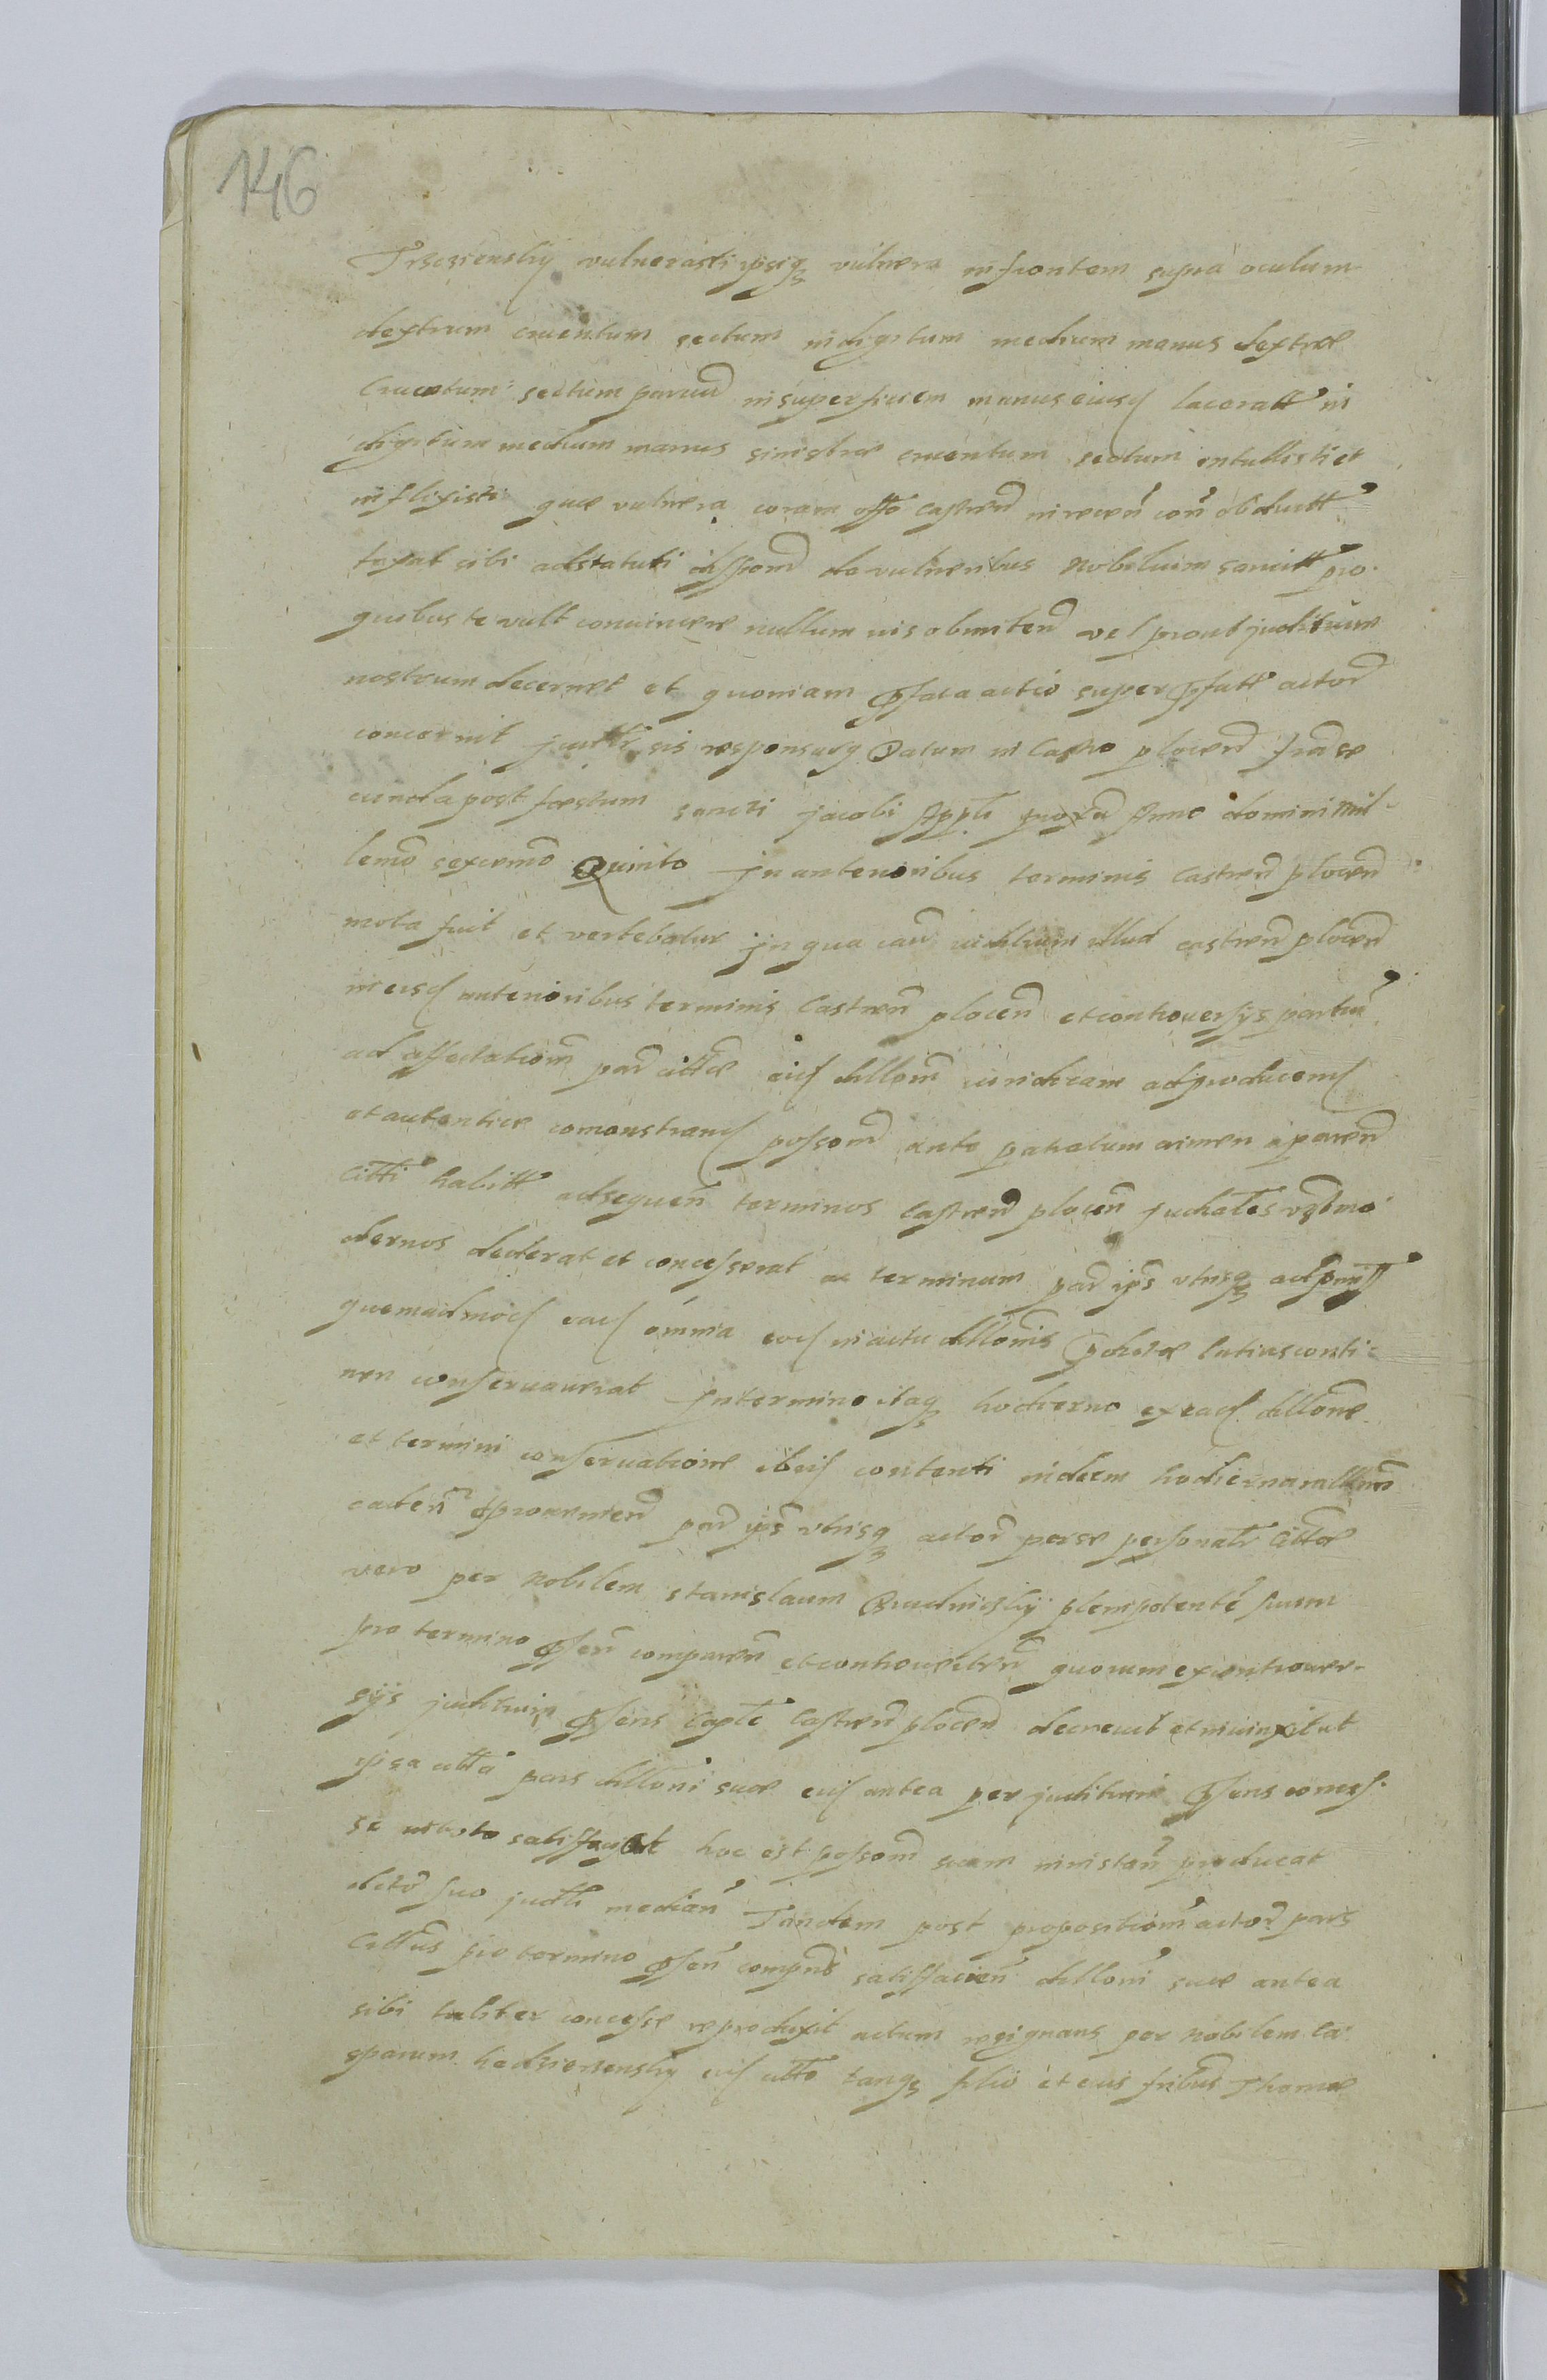 146
Trzcziensky vulnerasti ipsiq vulnera in frontem supra oculum
dextrum cruentum sectum in digitum medium manus dextræ
Cruentum sectum parvum in superficiem manus eiusd laceratt in
digitum medium manus sinistræ cruentum sectum intullisti et
inflixisti quæ vulnera coram offo Castren in recen con obductt
taxat sibi ad statuti disposn de vulneribus Nobilium sancitt pro
quibus te vult convincere nullum ius obmitten vel prout juditium
nostrum decernet et quoniam pfata actio super pfatt actor
concernit judtr sis responsurq Datum in Castro plocen fria se
cunda post festum sancti Jacobi Appli proxa Anno domini Mil-
lemo sexcemo Quinto In anterioribus terminis Castren plocen
mota fuit et vertebatur In qua cau juditium illud castren plocen
in eisd anterioribus terminis Castren plocen et controversijs partiu
ad affectationem par cittæ eid dillom juridicam ad producend
et autentice comonstrand posscom ante patratum crimen a paren
Citti habitt ad sequen terminos Castren plocen judiales
dernos dederat et concesserat ac terminum par ips utrisq ad
quemadmod ead omnia eod in actu dillonis latius conti-
nen conservaverat In termino itaq hodierno ex ead dillone
et termini conservatione ibid contenti
caden proveniem par ips utrisq actor per se personatr Citta
vero per Nobilem Stanislaum Brudniczky plenipotente suum
pro termino psen comparen et controverten quorum ex controver-
sijs juditium psens Capte Castren plocen decrevit et iniunxit ut
ipsa citta pars dilloni suæ eid antea per juditium psens concess
se satisfaciat hoc est possom suam in instan producat
dcto suo judtr median Tandem post propositiom actor pars
Cittus pro termino psen compns satisfacien dilloni suæ antea
sibi taliter concessæ reproduxit actum resignans per Nobilem Ca
sparum eid citto tanq filio et eius fribus Thomæ